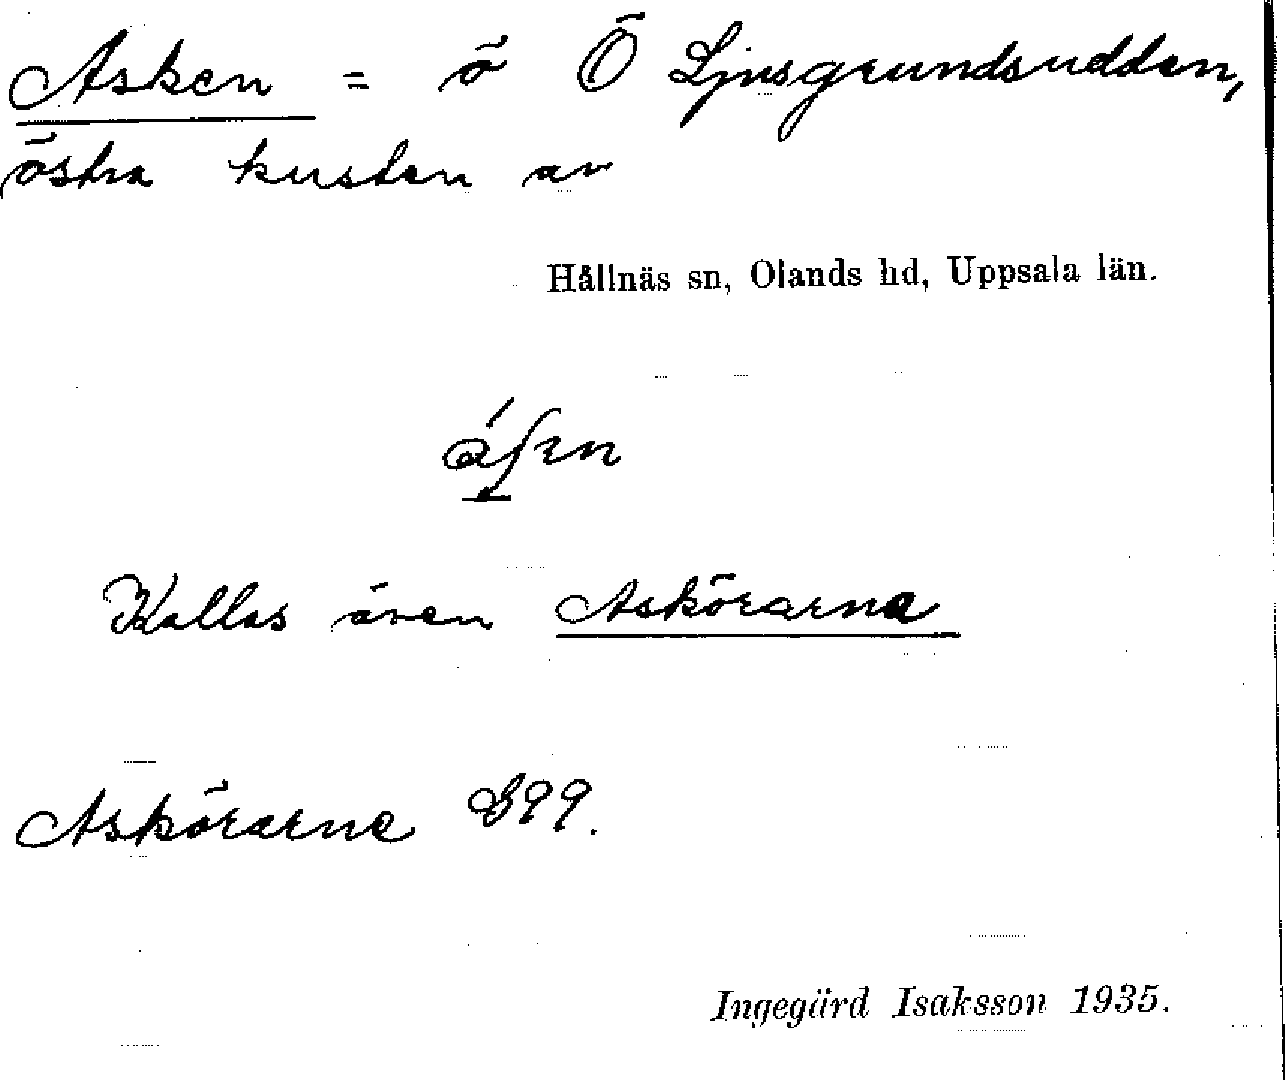 Asken = ö Ö Ljusgrundsudden,
östra kusten av
Hållnäs sn, Olands hd, Uppsala län.
Kallas även Askörarna
Askörarne 899.
Ingegärd Isaksson 1935.